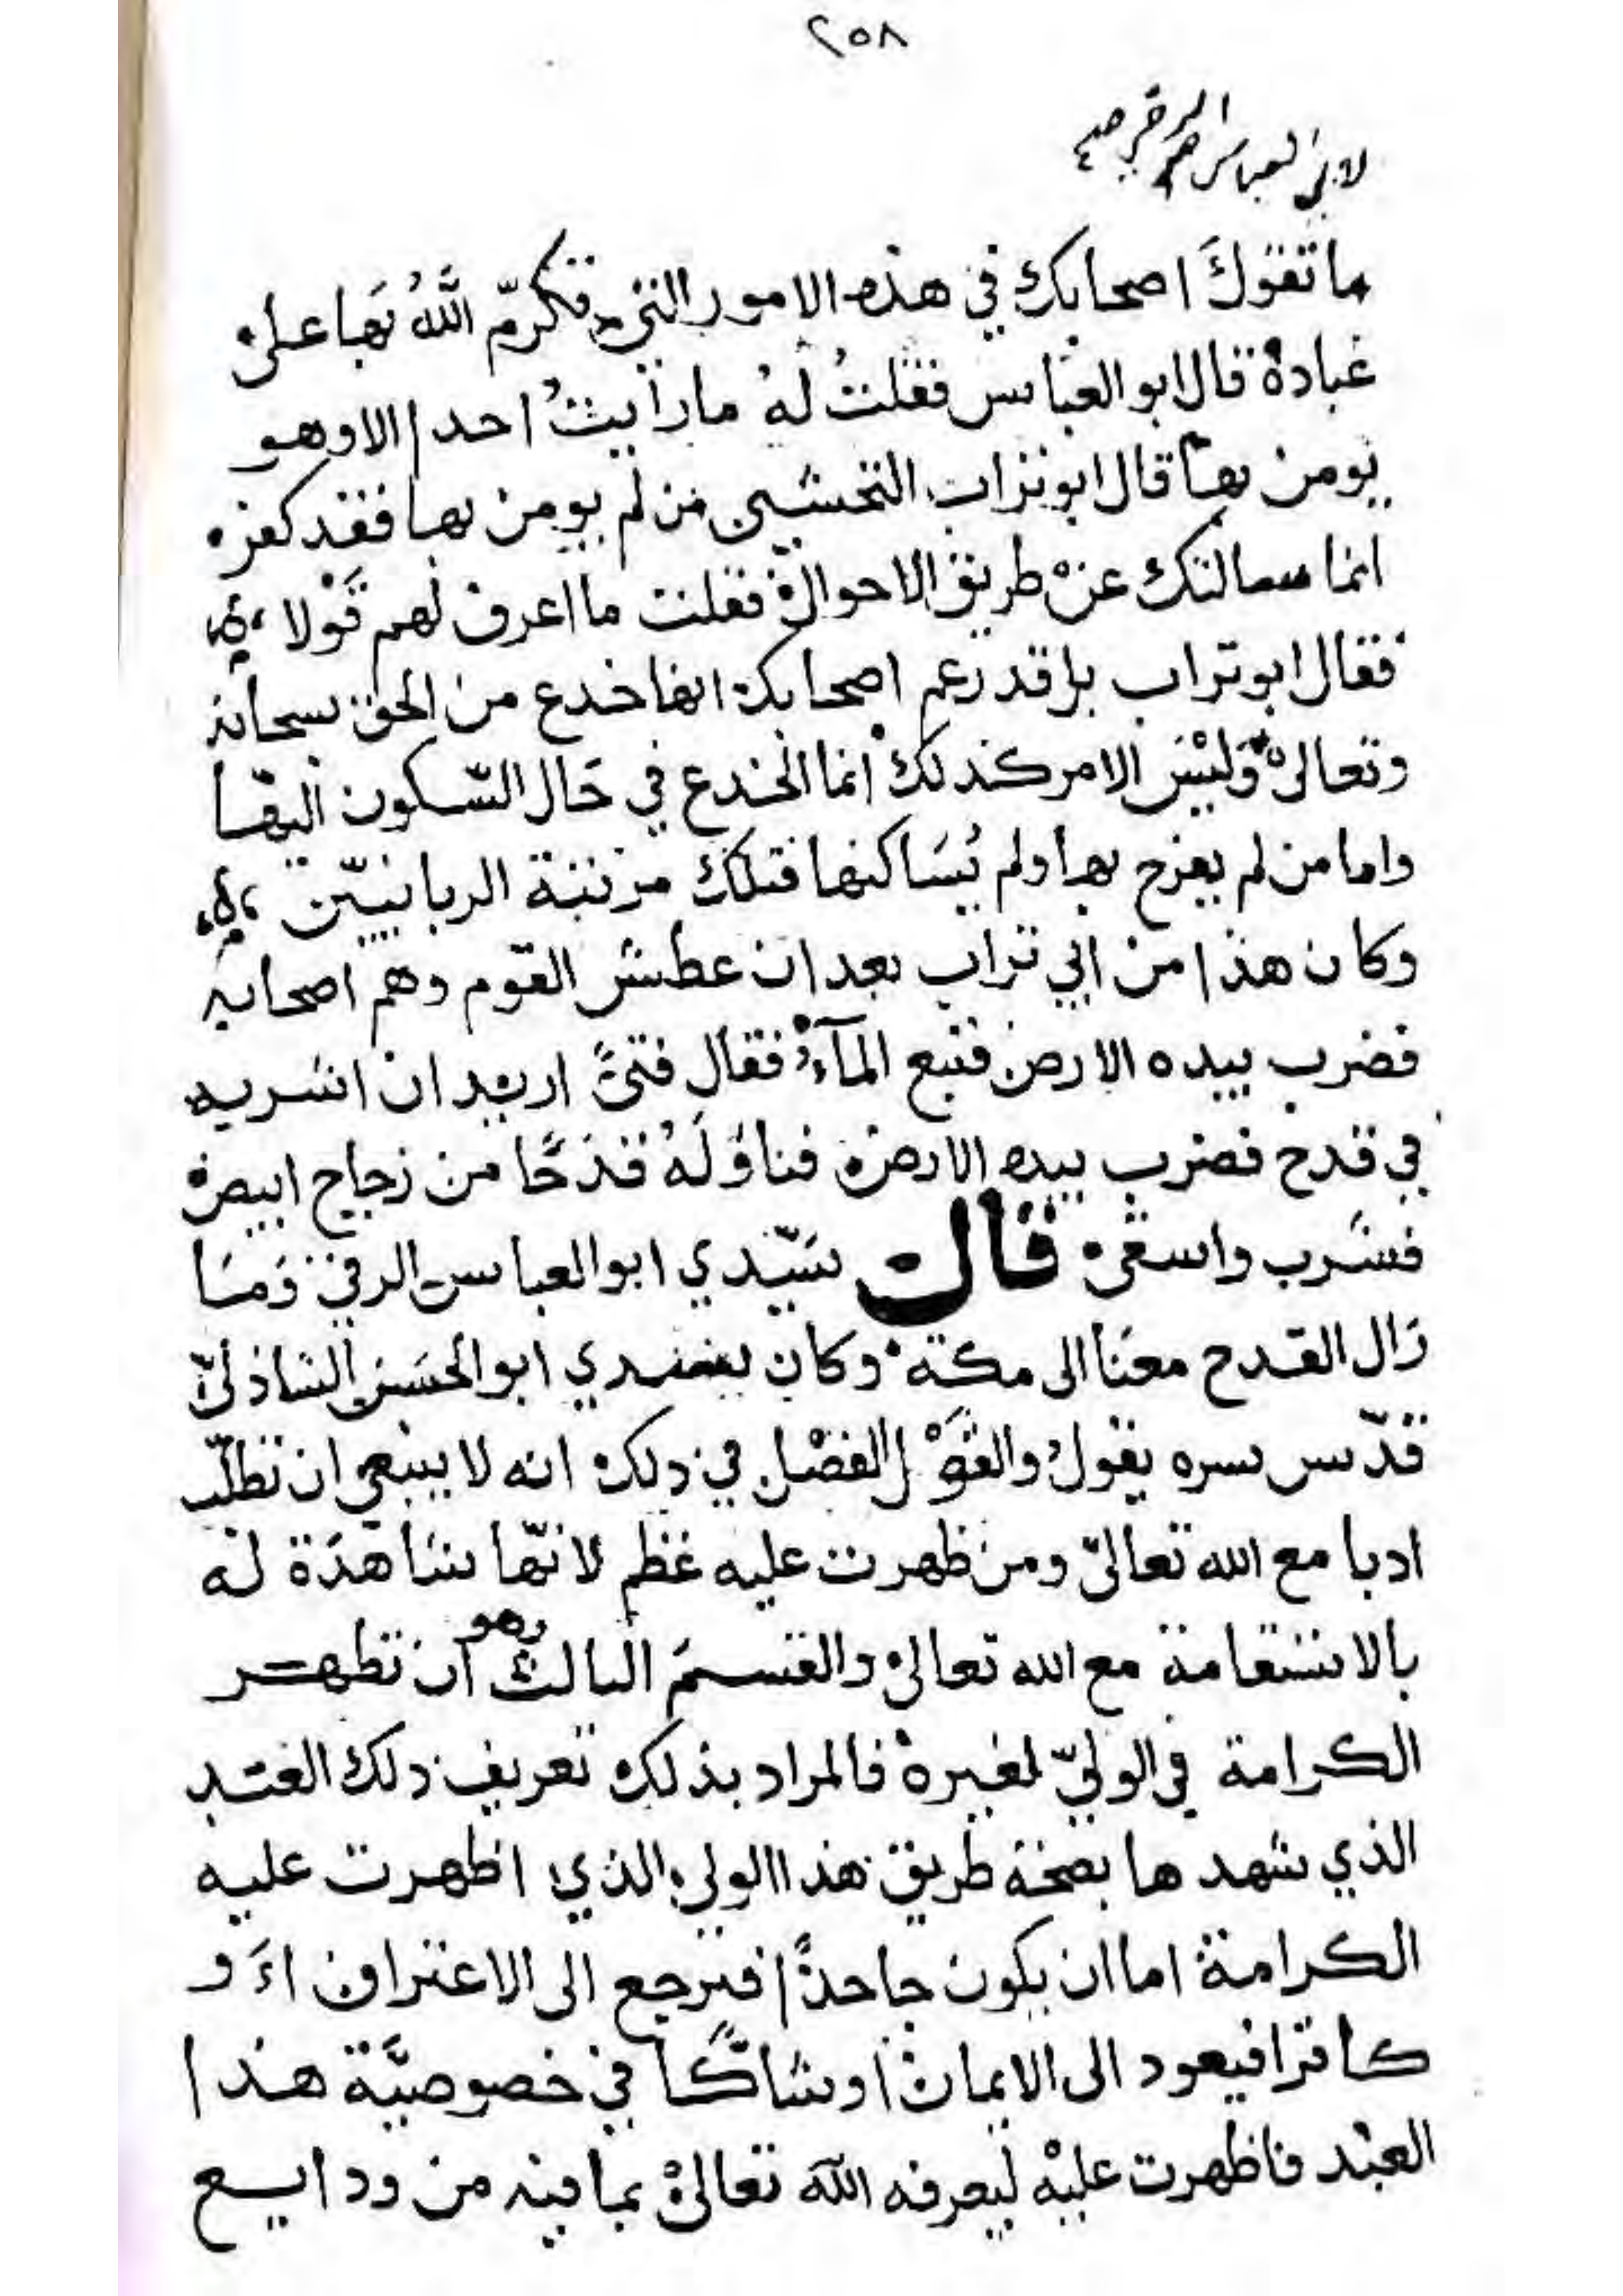 ٢٥٨
لابي العباس الرقي صح
ما تقول اصحابك في هذه الامور التي تكرم الله بها على
عبادة قال ابو العباس فقلت له ما رايت احدا الا وهو
يومن بها قال ابو تراب النخشبي من لم يومن بها فقد كفر
انما سالتك عن طريق الاحوال فقلت ما اعرف لهم قولا
فقال ابو تراب بل قد زعم اصحابك انها خدع من الحق سبحانه
وتعالى وليس الامر كذلك انما الخدع في حال السكون اليها
واما من لم يفرح بها ولم يساكنها فتلك مرتبة الربانيين
وكان هذا من ابي تراب بعد ان عطش القوم وهم اصحابه
فضرب بيده الارض فنبع المآء فقال فتىً اريد ان اشربه
في قدح فضرب بيده الارض فناوله قدحًا من زجاج ابيض
فشرب واسقى قال سيّدي ابو العباس الرقي وما
زال القدح معنا الى مكة وكان سيدي ابو الحسن الشاذليّ
قدّس سره يقول والقول الفصل في ذلك انه لا ينبغي ان تطلب
ادبا مع الله تعالى ومن ظهرت عليه عظم لانّها شاهدة له
بالاستقامة مع الله تعالى والقسم الثالث وهو ان تظهر
الكرامة في الوليّ لغيره فالمراد بذلك تعريف ذلك العبد
الذي شهدها بصحة طريق هذا الولي الذي اظهرت عليه
الكرامة اما ان يكون جاحدًا فيرجع الى الاعتراف اَو
كافرا فيعود الى الايمان او شاكًّا في خصوصيَّة هذا
العبد فاظهرت عليه ليعرفه الله تعالى بما فيه من ودايع